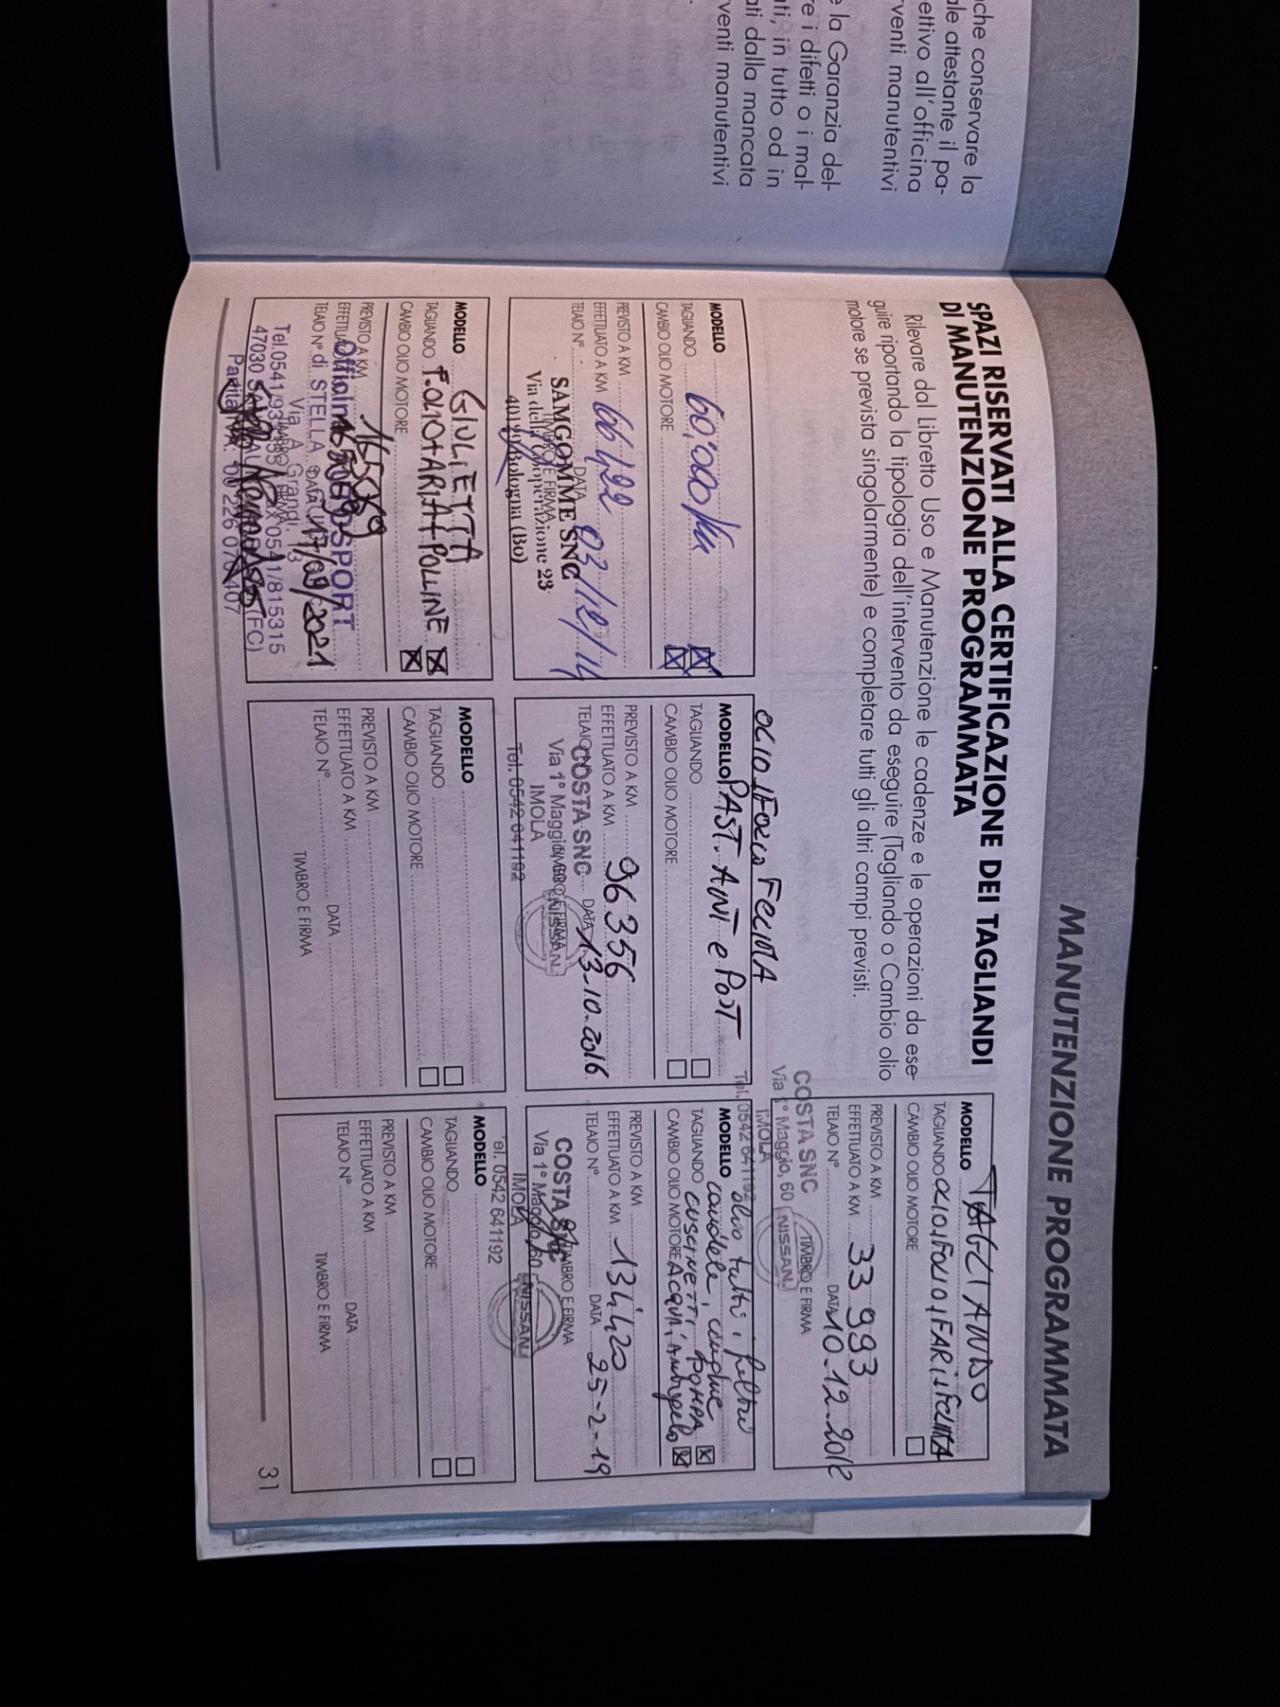 che conservare la
le attestante il pa-
ettivo all'officina
venti manutentivi
e la Garanzia del-
re i difetti o i mal-
ti, in tutto od in
ati dalla mancata
venti manutentivi
MANUTENZIONE PROGRAMMATA
SPAZI RISERVATI ALLA CERTIFICAZIONE DEI TAGLIANDI
DI MANUTENZIONE PROGRAMMATA
Rilevare dal Libretto Uso e Manutenzione le cadenze e le operazioni da ese-
guire riportando la tipologia dell'intervento da eseguire (Tagliando o Cambio olio
motore se prevista singolarmente) e completare tutti gli altri campi previsti.
MODELLO TAGLIANDO
TAGLIANDO
CAMBIO OLIO MOTORE
PREVISTO A KM
EFFETTUATO A KM 33 993
TELAIO N° DATA 10.12.2012
TIMBRO E FIRMA
COSTA SNC
Via 1° Maggio, 60
IMOLA
Tel. 0542 641192
NISSAN
MODELLO
TAGLIANDO 60.000 Km
CAMBIO OLIO MOTORE
PREVISTO A KM
EFFETTUATO A KM 66422
TELAIO N° DATA
TIMBRO E FIRMA
SAMGOMME SNC
Via della Cooperazione 23
Bologna (Bo)
MODELLO PAST. ANT e POST
TAGLIANDO
CAMBIO OLIO MOTORE
PREVISTO A KM
EFFETTUATO A KM 96356
TELAIO N° DATA 13-10-2016
TIMBRO E FIRMA
COSTA SNC
Via 1° Maggio, 60
IMOLA
Tel. 0542 641192
NISSAN
MODELLO olio tutti i filtri
TAGLIANDO candele, cinghie
cuscinetti, POMPA
CAMBIO OLIO MOTORE ACQUA,
PREVISTO A KM
EFFETTUATO A KM 134420
TELAIO N° DATA 25-2-19
TIMBRO E FIRMA
COSTA SNC
Via 1° Maggio, 60
IMOLA
Tel. 0542 641192
NISSAN
MODELLO GIULIETTA
TAGLIANDO F.OLIO+ARIA+POLLINE
CAMBIO OLIO MOTORE
PREVISTO A KM
EFFETTUATO A KM
TELAIO N° DATA 17/09/2021
TIMBRO E FIRMA
di STELLA
Via A. Grandi, 13
0541/815315
47030
(FC)
MODELLO
TAGLIANDO
CAMBIO OLIO MOTORE
PREVISTO A KM
EFFETTUATO A KM
TELAIO N° DATA
TIMBRO E FIRMA
MODELLO
TAGLIANDO
CAMBIO OLIO MOTORE
PREVISTO A KM
EFFETTUATO A KM
TELAIO N° DATA
TIMBRO E FIRMA
31